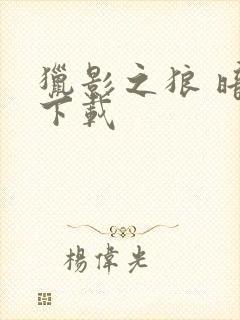 獵影之狼 暗
下載
楊偉光